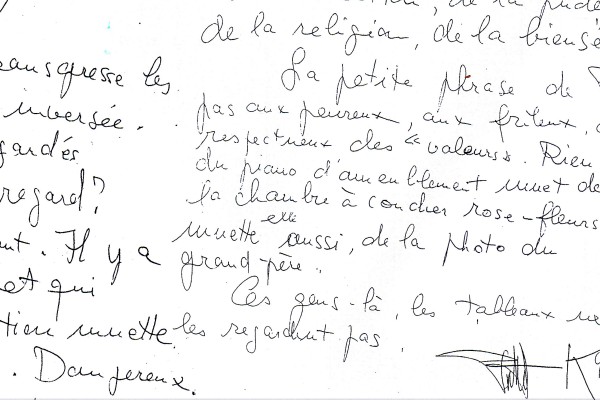 ransgresse les
inversée.
gardés
regard?
ut. Il y a
et qui
tion muette
. Dangereux.
de la religion, de la biensé
La petite phrase de
pas aux peureux, aux frileux,
respectueux des "valeurs". Rien
du piano d'ameublement muet de
la chambre à coucher rose-fleurs
muette elle aussi, de la photo du
grand-père.
Ces gens-là, les tableaux ne
les regardent pas.